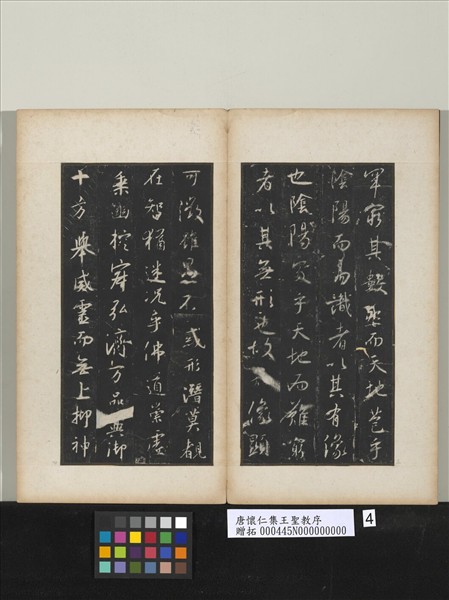 罕窮其數然而天地苞乎
陰陽而易識者以其有像
也陰陽處乎天地而難窮
者以其無形也故像顯
可徵雖愚不惑形潛莫覩
在智猶迷況乎佛道崇虛
乘幽控寂弘濟万品典御
十方舉威靈而無上抑神
唐懷仁集王聖教序
贈拓 000445N000000000
4